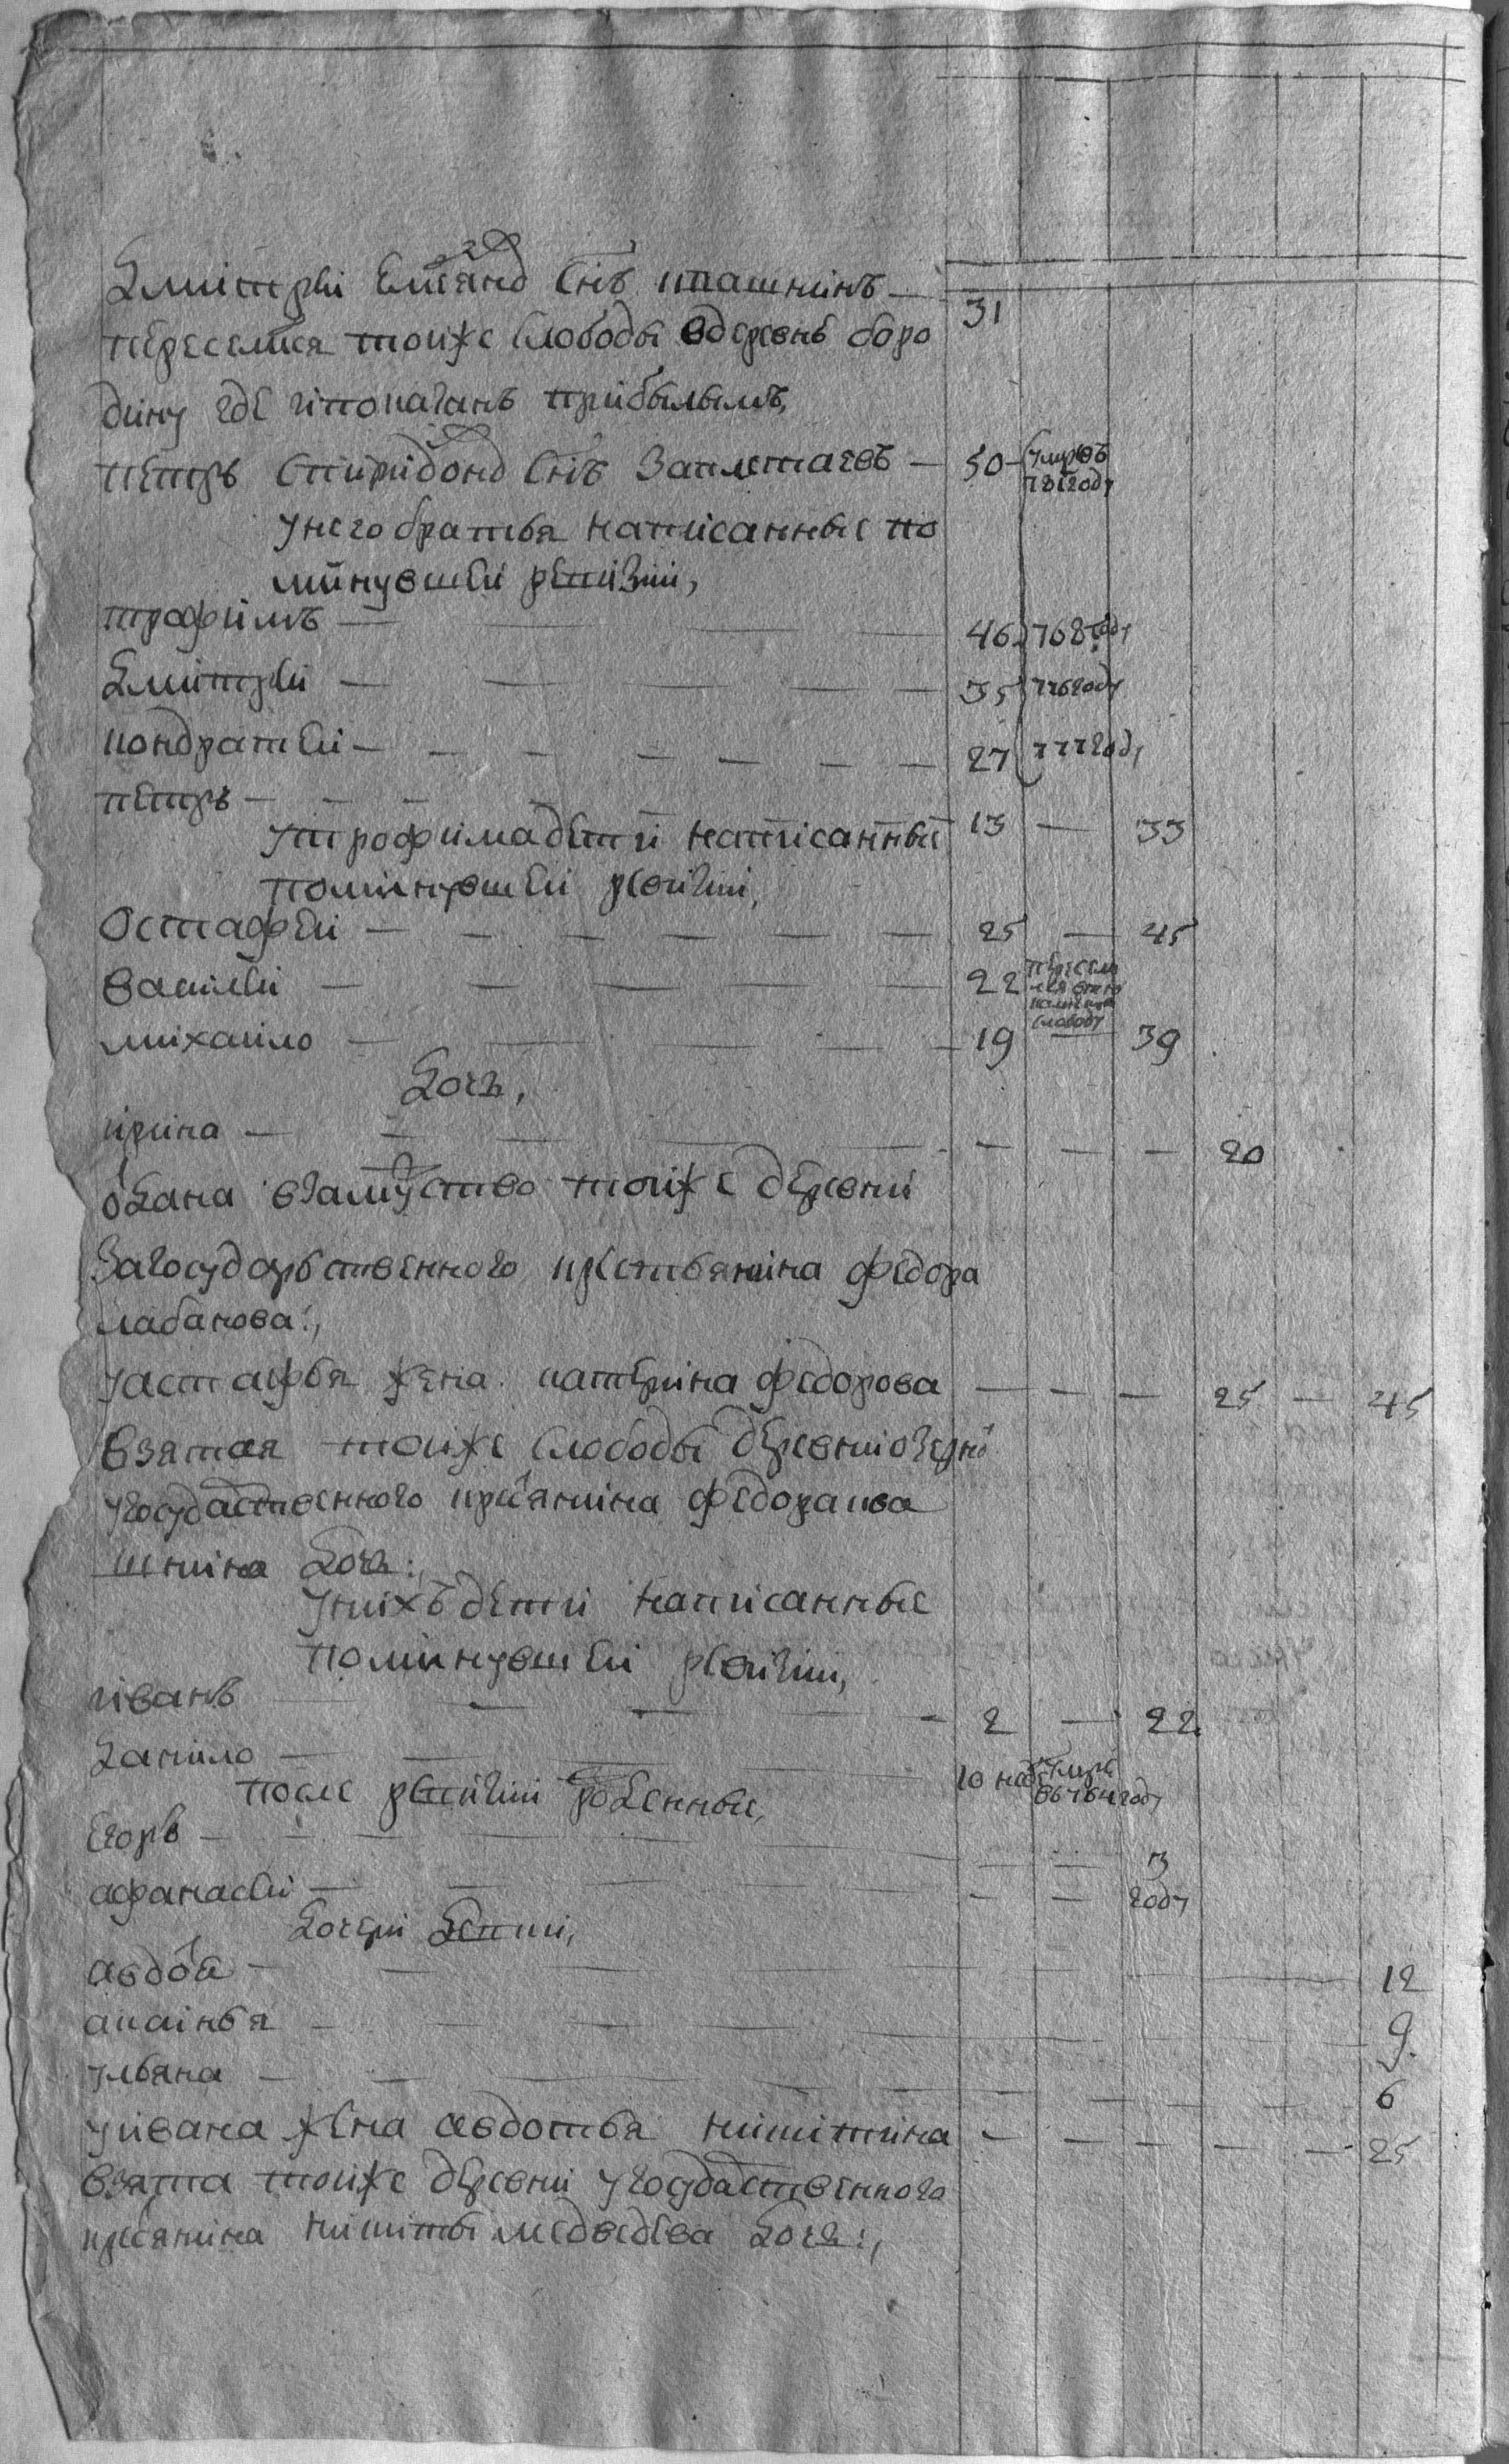 Дмитреи Емельянов снъ кташнинъ — 31
переселился тоиже слободы вдеревнь боро
дину где ипоказанъ прибылымъ,
петръ спиридонов снъ заплетаевъ — 50 — умре въ 781 году
унего братья написанные по
минувшеи ревизии,
трофимъ — 46 768 году
Дмитреи — 35 776 году
кондратеи — 27 777 году
петръ — 13 — 33
утрофима дети написанные
поминувшеи ревизии,
Остафеи — 25 — 45
василеи — 22 переселился
слободу
михаило — 19 — 39
Дочь,
ирина — 20
одана взамуство тоиже деревни
Загосударьственного крестьянина федора
лабанова:,
уастафья жена катерина федорова — 25 — 45
взятая тоиже слободы деревни
угосударственного крестьянина федора ква
шнина дочь:,
унихъ дети написанные
поминувшеи ревизии,
иванъ — 2 — 22
Данило — 10 нед умре
после ревизии рожденные,
Егоръ — 3
афанасеи — году
Дочери дети,
авдотя — 12
акилнья — 9
ульяна — 6
уивана жена авдотья никитина — 25
взята тоиже деревни угосударственного
кресьянина никиты медведева дочь:,